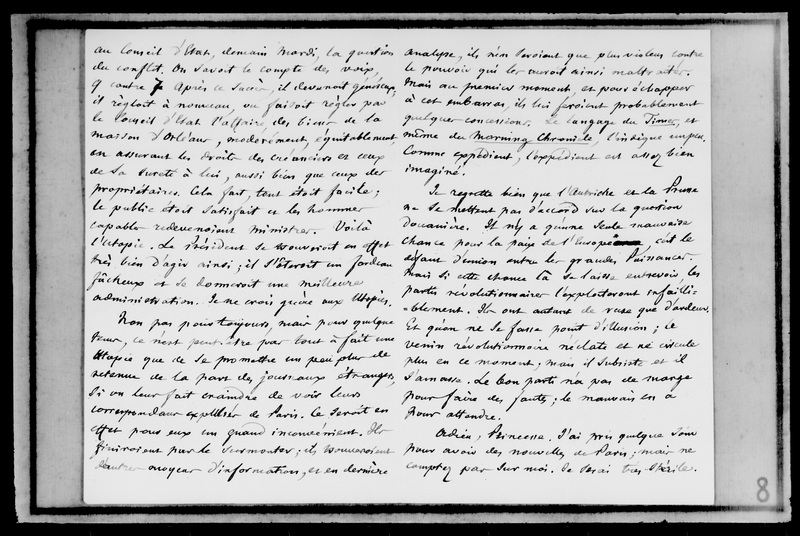 au Conseil d'Etat, demain Mardi, la question
du conflit. On savoit le compte des voix,
9 contre 7 après ce succès, il devenoit généreux;
il régloit à nouveau, ou faisoit régler par
le Conseil d'Etat l'affaire des biens de la
maison d'Orléans, modérément, équitablement,
en assurant les droits des créanciers et ceux
de la sureté à lui, aussi bien que ceux des
propriétaires. Cela fait, tout étoit facile;
le public étoit satisfait et les hommes
capables redevenoient ministres. Voilà
l'utopie. Le Président se trouveroit en effet
très bien d'agir ainsi; il s'ôteroit un fardeau
fâcheux et se donneroit une meilleure
administration. Je ne crois guère aux Utopies.
Non pas pour toujours, mais pour quelque
tems, ce n'est peut-être pas tout à fait une
Utopie que de se promettre un peu plus de
retenue de la part des journaux étrangers,
si on leur fait craindre de voir leurs
correspondans expulser de Paris. Ce seroit en
effet pour eux un grand inconvénient. Ils
finiroient par le surmonter; ils trouveroient
d'autres moyens d'information, et en dernière
analyse, ils n'en seroient que plus violens contre
le pouvoir qui les auroit ainsi maltraités.
Mais au premier moment, et pour échapper
à cet embarras, ils lui feroient probablement
quelques concessions. Le langage du Times, et
même du Morning Chronicle, l'indique un peu.
Comme expédient, l'expédient est assez bien
imaginé.
Je regrette bien que l'Autriche et la Prusse
ne se mettent pas d'accord sur la question
Douanière. Il n'y a qu'une seule mauvaise
chance pour la paix de l'Europe, c'est le
défaut d'union entre les grandes Puissances.
Mais si cette chance là se laisse entrevoir, les
partis révolutionnaires l'exploiteront infailli-
=blement. Ils ont autant de ruse que d'ardeur.
Et qu'on ne se fasse point d'illusion; le
venin révolutionnaire n'éclate et ne circule
plus en ce moment; mais il subsiste et il
s'amasse. Le bon parti n'a pas de marge
pour faire des fautes; le mauvais en a
pour attendre.
Adieu, Princesse. J'ai pris quelque soin
pour avoir des nouvelles de Paris; mais ne
comptez pas sur moi. Je serai très stérile.
8